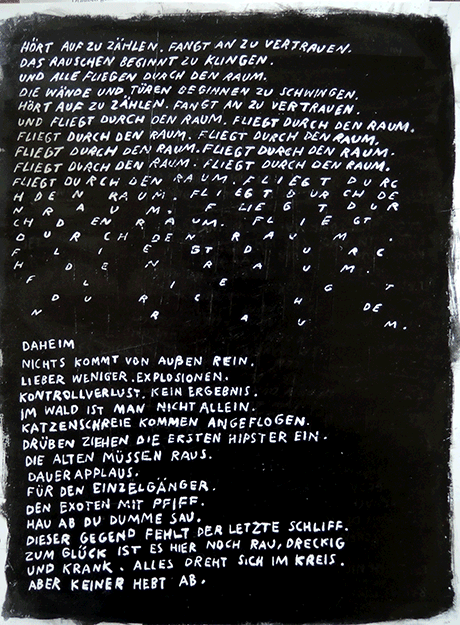 HÖRT AUF ZU ZÄHLEN. FANGT AN ZU VERTRAUEN.
DAS RAUSCHEN BEGINNT ZU KLINGEN.
UND ALLE FLIEGEN DURCH DEN RAUM.
DIE WÄNDE UND TÜREN BEGINNEN ZU SCHWINGEN.
HÖRT AUF ZU ZÄHLEN. FANGT AN ZU VERTRAUEN.
UND FLIEGT DURCH DEN RAUM. FLIEGT DURCH DEN RAUM.
FLIEGT DURCH DEN RAUM. FLIEGT DURCH DEN RAUM.
FLIEGT DURCH DEN RAUM. FLIEGT DURCH DEN RAUM.
FLIEGT DURCH DEN RAUM. FLIEGT DURCH DEN RAUM.
FLIEGT DURCH DEN RAUM. FLIEGT DURC
H DEN RAUM. FLIEGT DURCH DE
N RAUM. FLIEGT DUR
CH DEN RAUM. FLIEGT
DURCH DEN RAUM.
FLIEGT DURC
H DEN RAUM.
FLIEGT
DURCH DE
N RAUM.
DAHEIM
NICHTS KOMMT VON AUßEN REIN.
LIEBER WENIGER EXPLOSIONEN.
KONTROLLVERLUST. KEIN ERGEBNIS.
IM WALD IST MAN NICHT ALLEIN.
KATZENSCHREIE KOMMEN ANGEFLOGEN.
DRÜBEN ZIEHEN DIE ERSTEN HIPSTER EIN.
DIE ALTEN MÜSSEN RAUS.
DAUERAPPLAUS.
FÜR DEN EINZELGÄNGER.
DEN EXOTEN MIT PFIFF.
HAU AB DU DUMME SAU.
DIESER GEGEND FEHLT DER LETZTE SCHLIFF.
ZUM GLÜCK IST ES HIER NOCH RAU, DRECKIG
UND KRANK. ALLES DREHT SICH IM KREIS.
ABER KEINER HEBT AB.